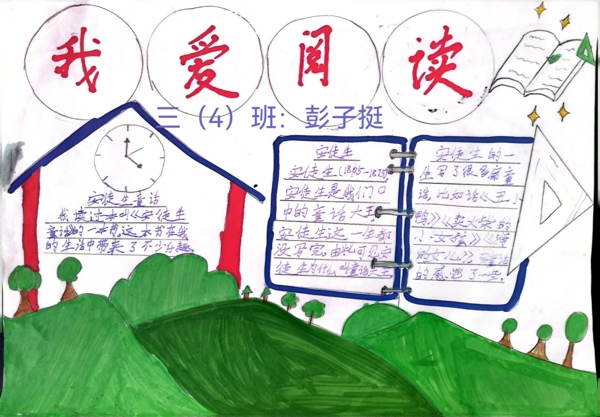 我爱阅读
三（4）班：彭子挺
安徒生童话
我读过本叫《安徒生
的一本书这本书在我
的生活中带来了不少乐趣
安徒生
安徒生(1805-1875)
安徒生是我们口
中的童话大王
安徒生这一生都
没写完由此可见安
徒生为什么叫童话大王
安徒生的一
生写了很多篇童
话,比如话《丑小
鸭》《卖火柴的
小女孩》《
的女儿》
的感